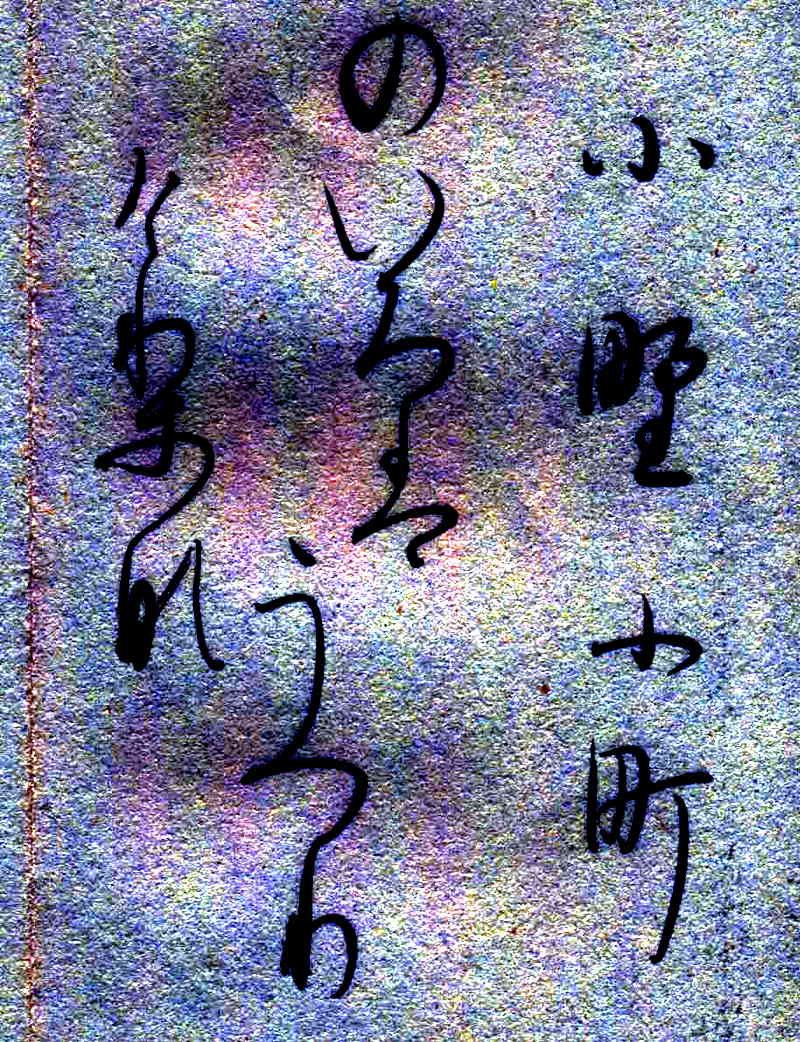 小野小町
のいろは
うつり
にけりな